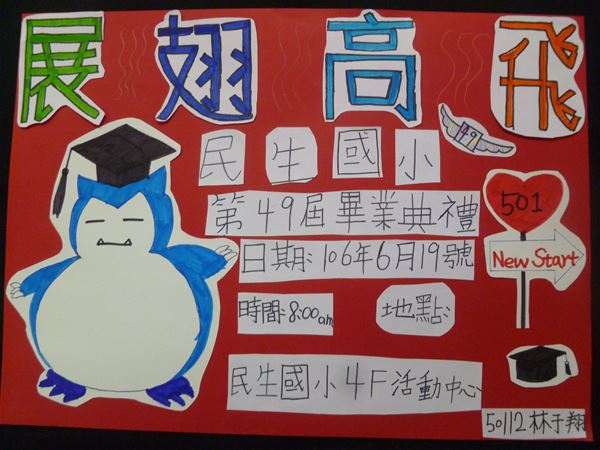 展翅高飛
民生國小
49
第49屆畢業典禮
501
日期:106年6月19號
New Start
時間:8:00am
地點:
民生國小4F活動中心
50112林于翔